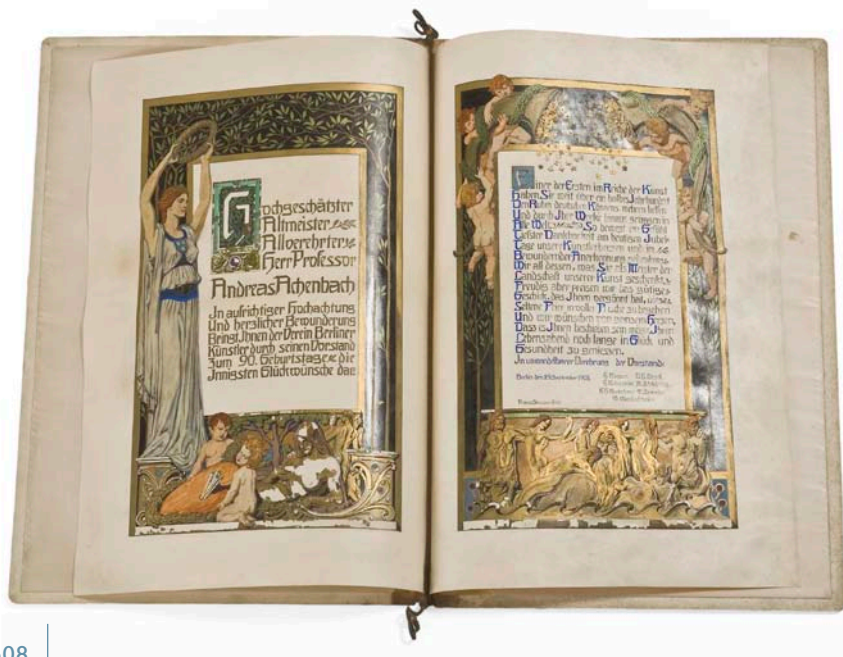 Hochgeschätzter
Altmeister
Alloerehrter
Herr Professor
Andreas Achenbach
In aufrichtiger Hochachtung
Und herzlicher Bewunderung
Bringt Ihnen der Verein Berliner
Künstler durch seinen Vorstand
Zum 90. Geburtstage die
Innigsten Glückwünsche dar
Einer der Ersten im Reiche der Kunst
haben Sie weit über ein halbes Jahrhundert
Den Ruhm deutschen Könnens mehren helfen
Und durch Ihre Werke hinaus getragen in
Alle Welt So bewegt ein Gefühl
Tiefster Dankbarkeit am heutigen Jubel
Tage unser Künstlerherzen und in
Bewundernder Anerkennung
Wir all dessen, was Sie als Meister der
Landschaft unserer Kunst geschenkt
Freudig aber preisen wir das gütige
Geschick das Ihnen vergönnt hat, diese
Seltene Feier in voller Frische zu begehen
Und wir wünschen von ganzem Herzen,
Dass es Ihnen beschieden sein möge Ihren
Lebensabend noch lange in Glück und
Gesundheit zu geniessen.
In unwandelbarer Verehrung der Vorstand:
Berlin den 29. September